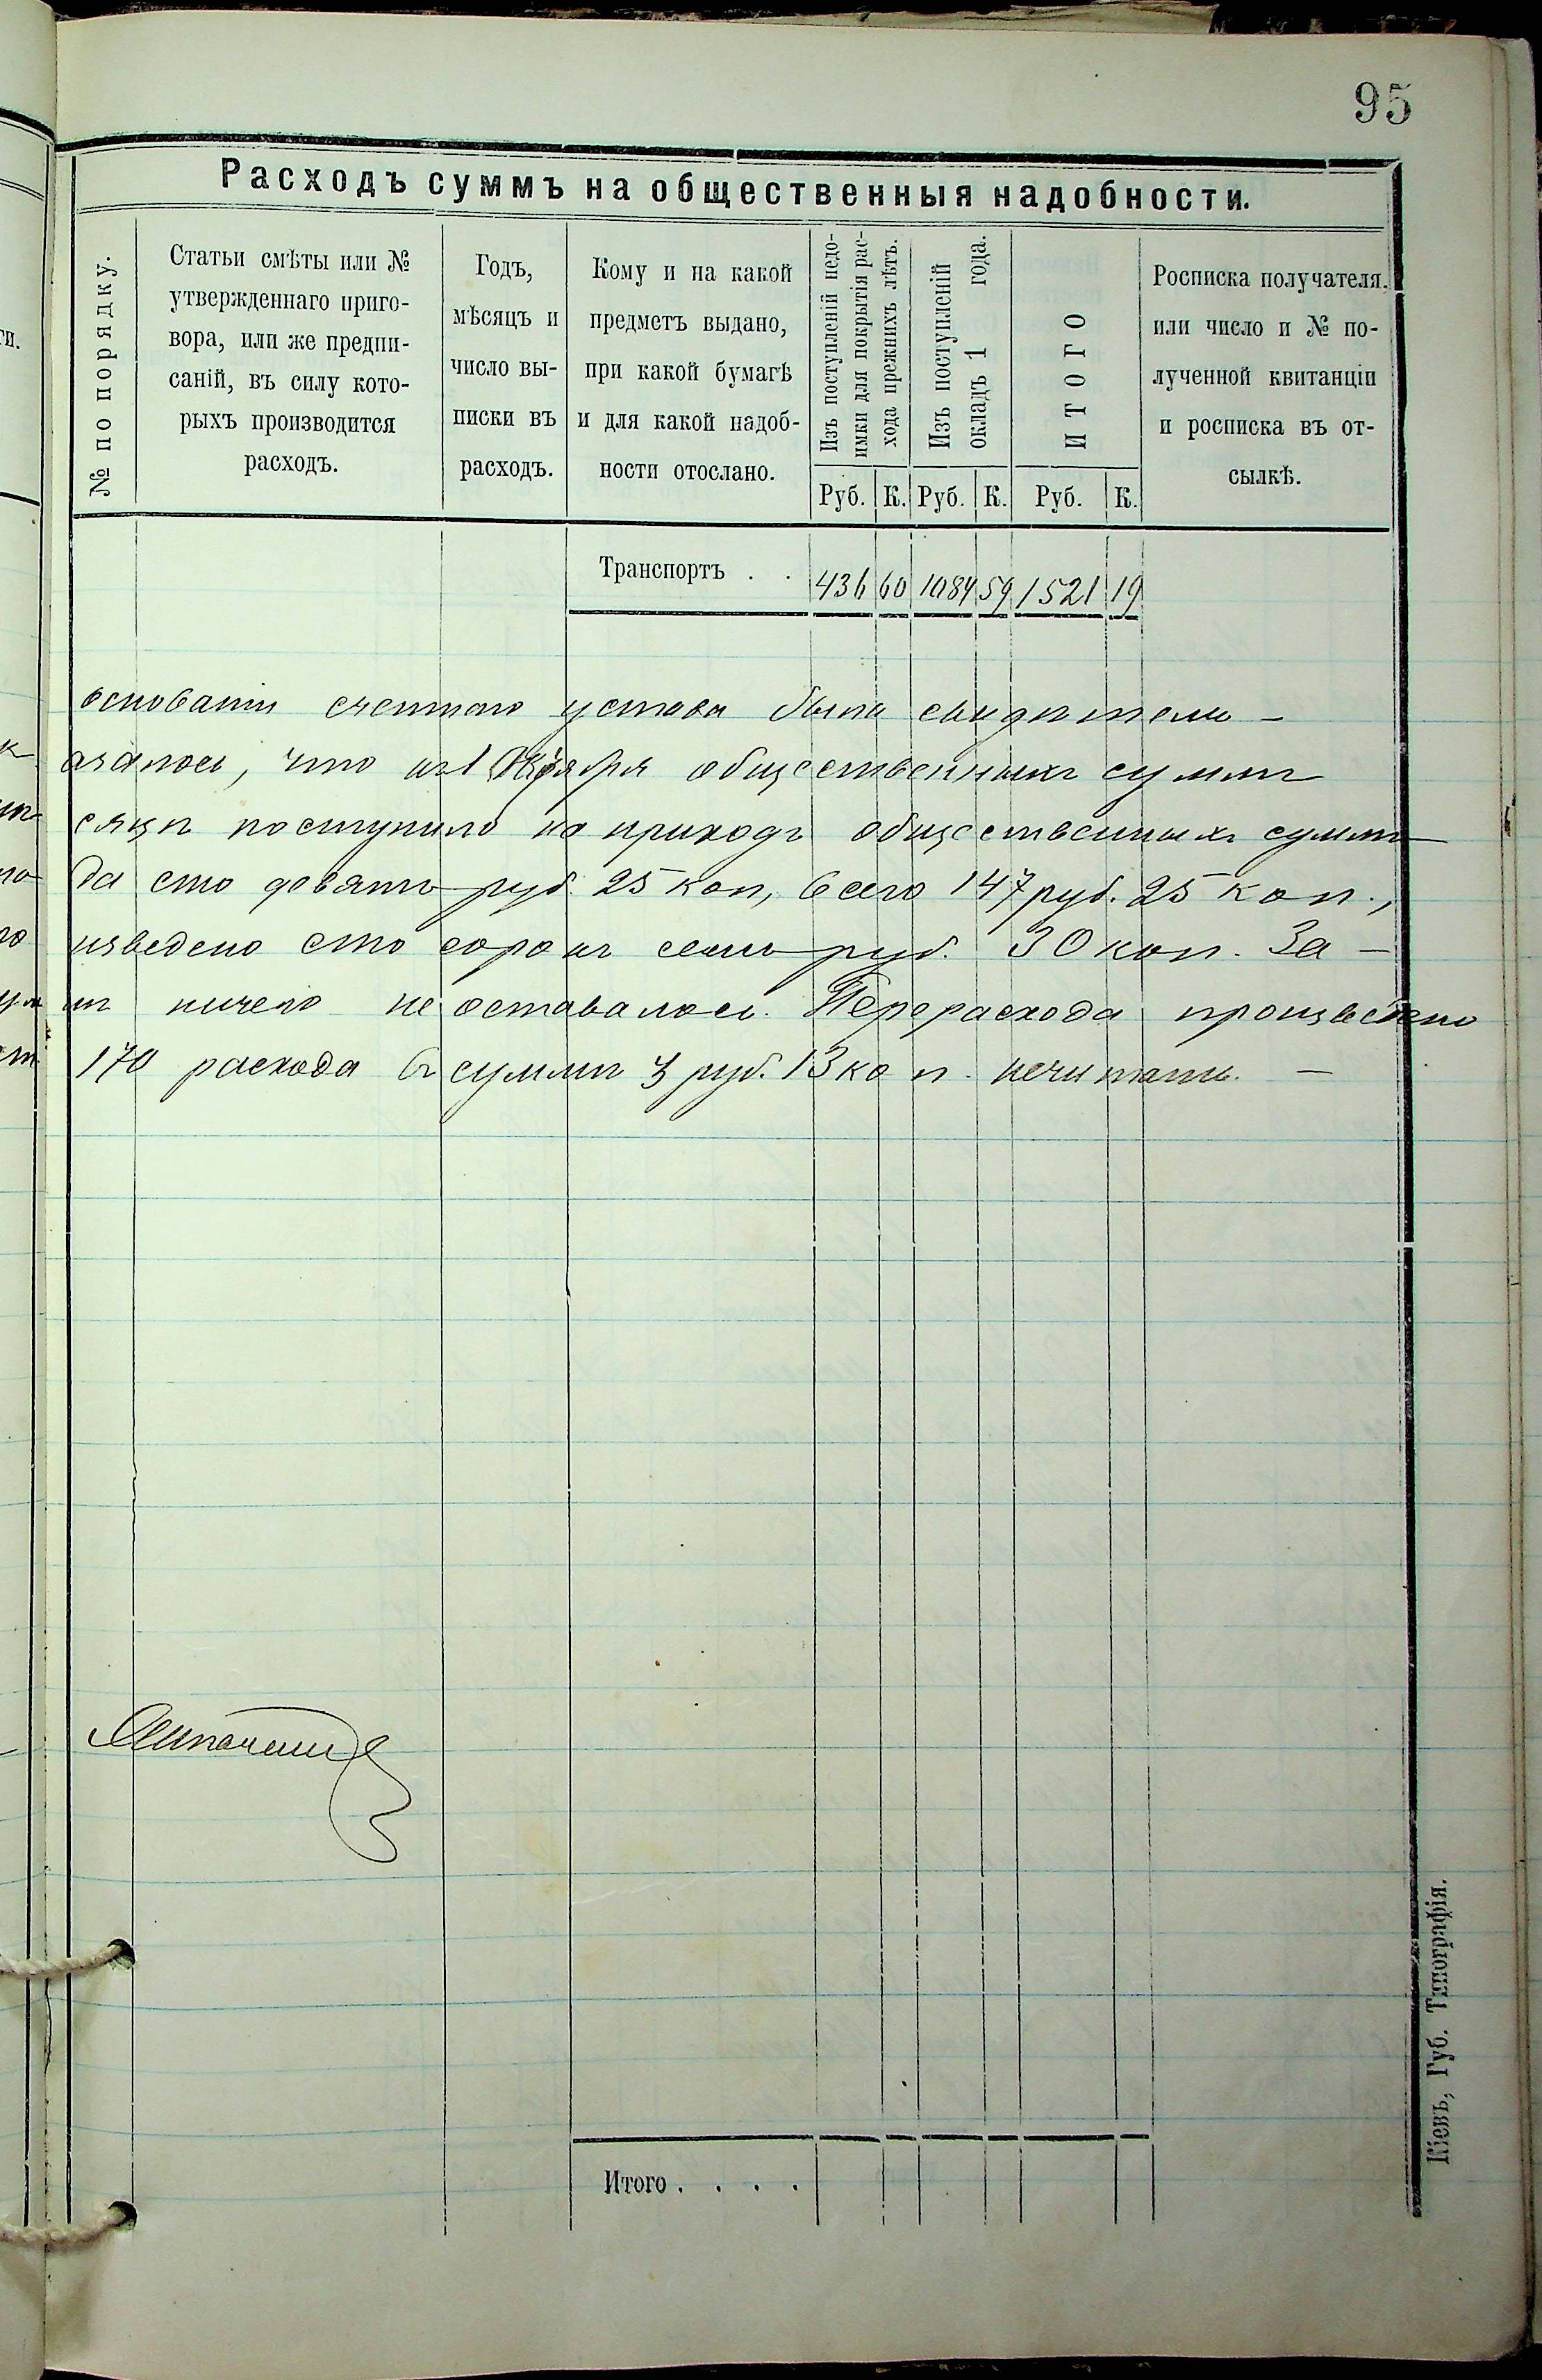 95
Расходъ суммъ на общественныя надобности.
№ по порядку.
Статьи смѣты или №
утвержденнаго приго-
вора, или же предпи-
саній, въ силу кото-
рыхъ производится
расходъ.
Годъ,
мѣсяцъ и
число вы-
писки въ
расходъ.
Кому и на какой
предметъ выдано,
при какой бумагѣ
и для какой надоб-
ности отослано.
Изъ поступленій недо-
имки для покрытія рас-
хода прежнихъ лѣтъ.
Изъ поступленій
окладъ 1 года.
ИТОГО
Росписка получателя
или число и № по-
лученной квитанціи
и росписка въ от-
сылкѣ.
Руб. К. Руб. К. Руб. К.
Транспортъ . . 436 60 1084 59 1521 19
основаніи счетнаго устава были свидѣтели —
азалось, что къ 1 общественныхъ суммъ
сяцѣ поступило на приходъ общественныхъ суммъ
да сто девять руб. 25 коп, всего 147 руб. 25 коп.,
изведено сто сорокъ семь руб. 30 коп. За —
ничего не оставалось. Перерасхода произведено
170 расхода въ суммѣ 3 руб. 13 коп. нечитать. —
Итого . . . .
Кіевъ, Губ. Типографія.